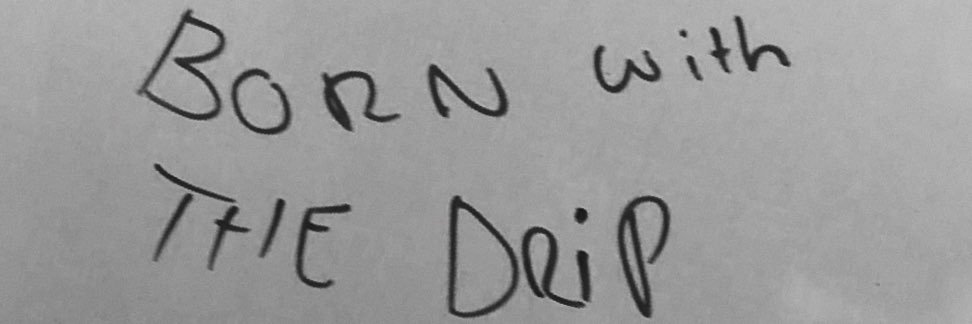 BORN with
THE DRiP